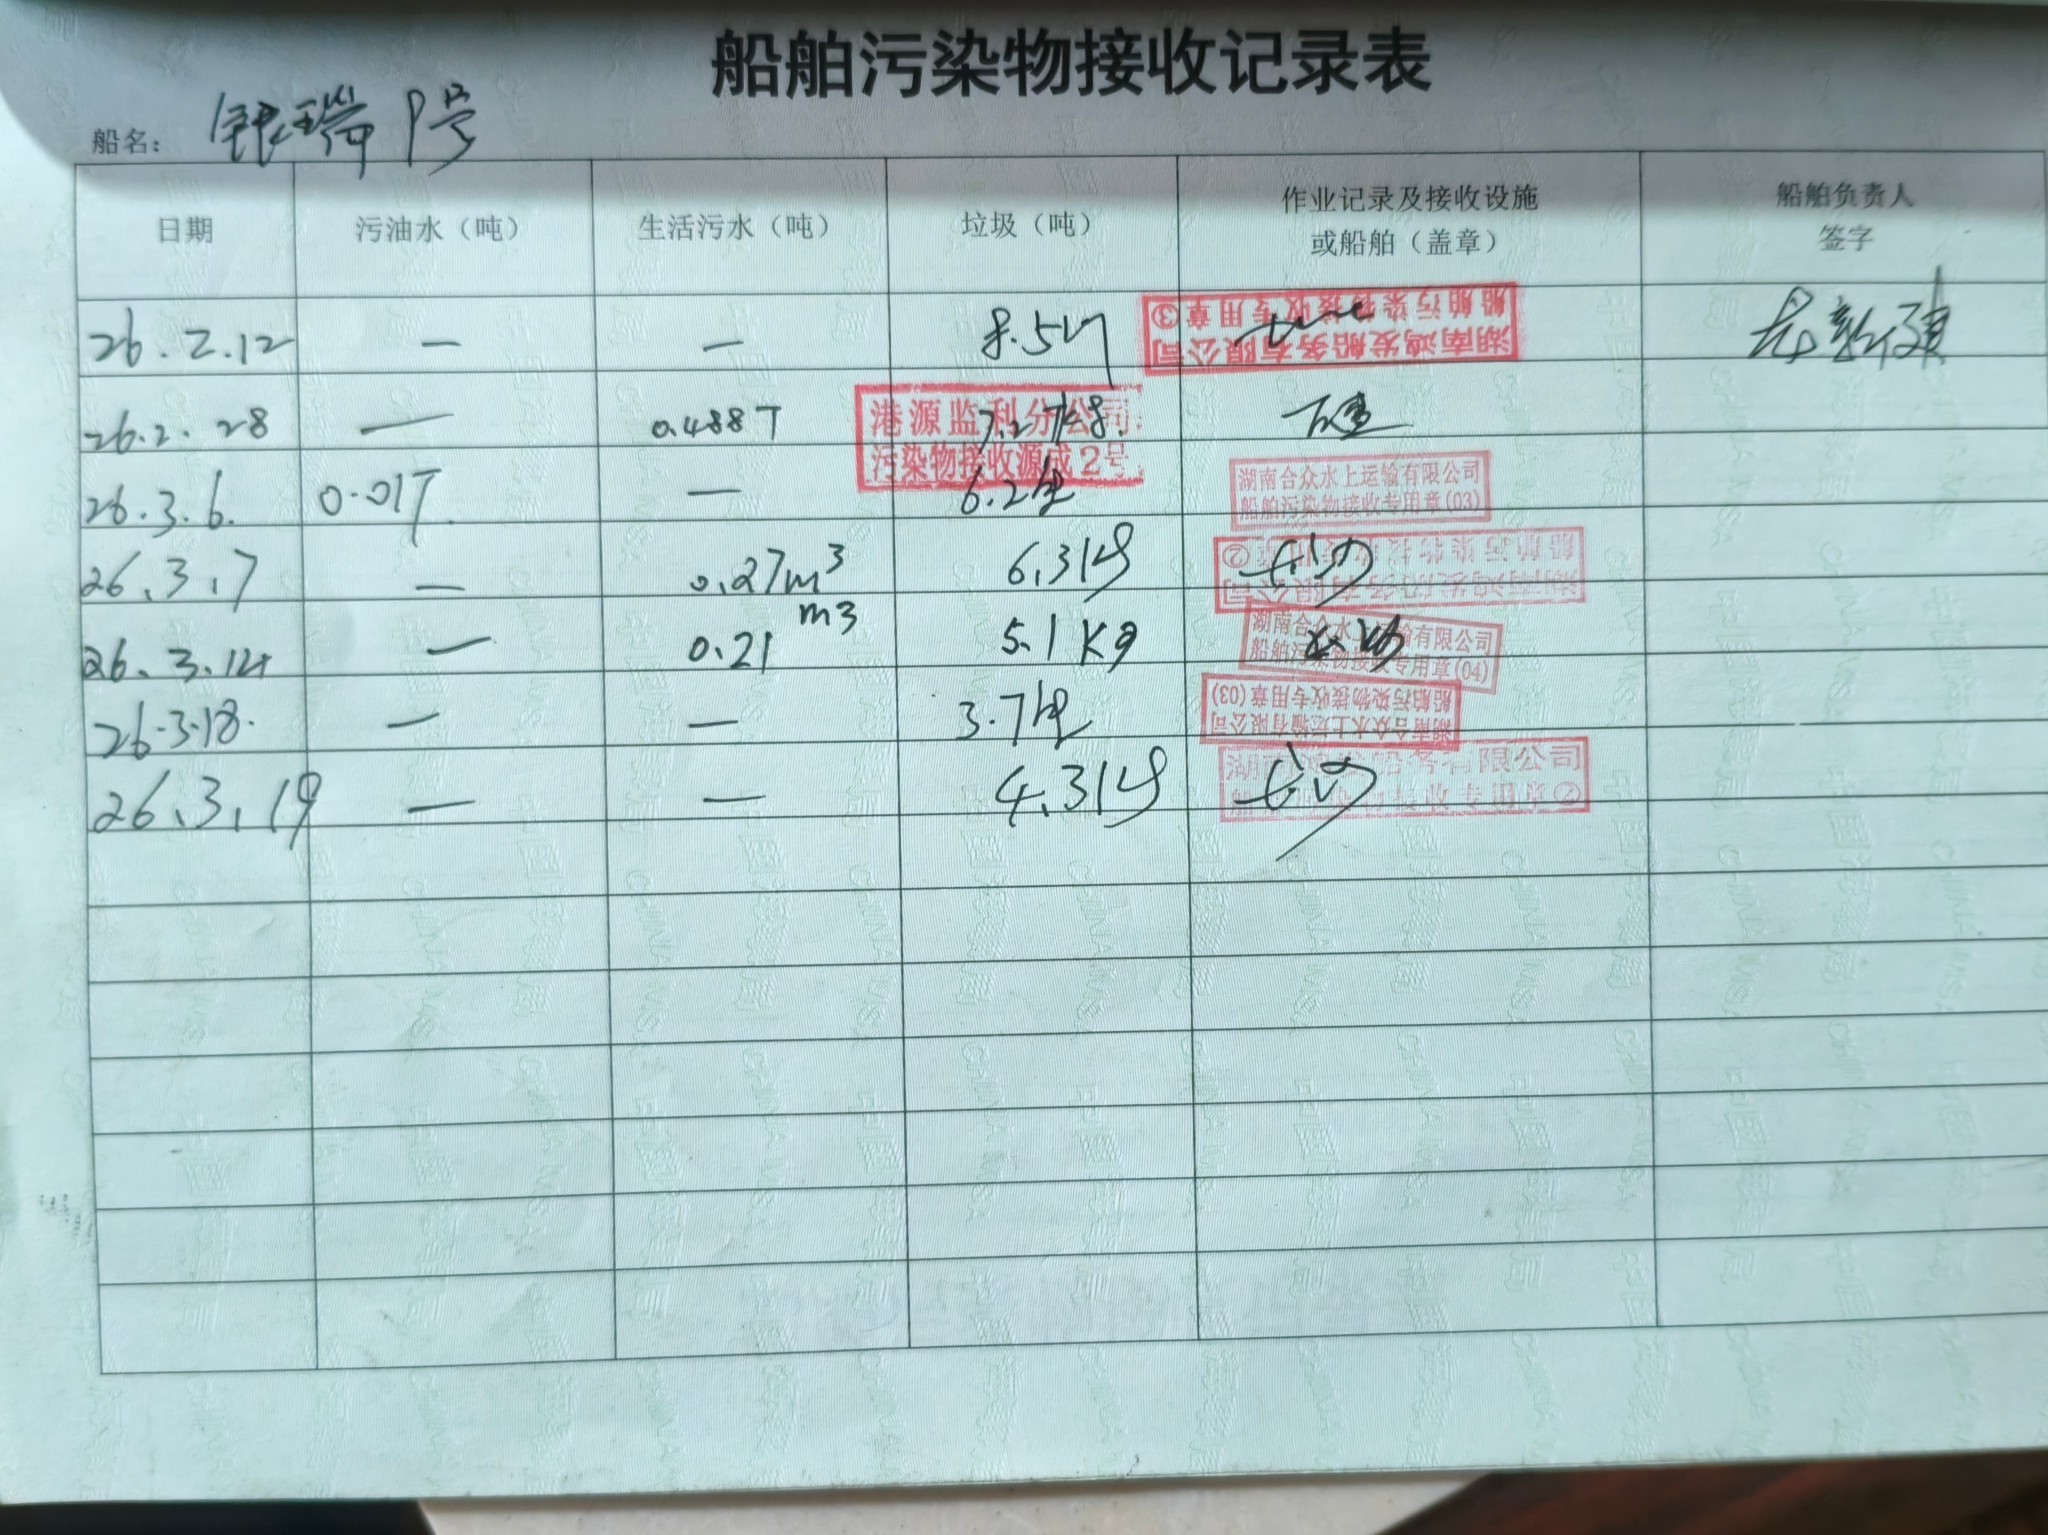 船舶污染物接收记录表
船名: 银瑞1号
日期 污油水（吨） 生活污水（吨） 垃圾（吨） 作业记录及接收设施或船舶（盖章） 船舶负责人签字
26.2.12 — — 8.5 湖南鸿发船务有限公司 船舶污染物接收专用章③
26.2.28 — 0.488T 7.27kg 港源监利分公司 污染物接收源成2号
26.3.6. 0.01T — 6.2 湖南合众水上运输有限公司 船舶污染物接收专用章(03)
26.3.7 — 0.27m3 6.3kg 湖南鸿发船务有限公司 船舶污染物接收专用章②
26.3.14 — 0.21 m3 5.1 Kg 湖南合众水上运输有限公司 船舶污染物接收专用章(04)
26.3.18. — — 3.7 湖南合众水上运输有限公司 船舶污染物接收专用章(03)
26.3.19 — — 4.3kg 船务有限公司 接收专用章②